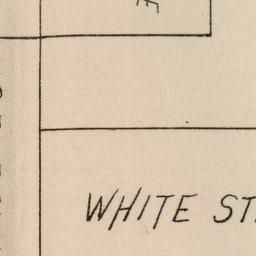 WHITE ST.